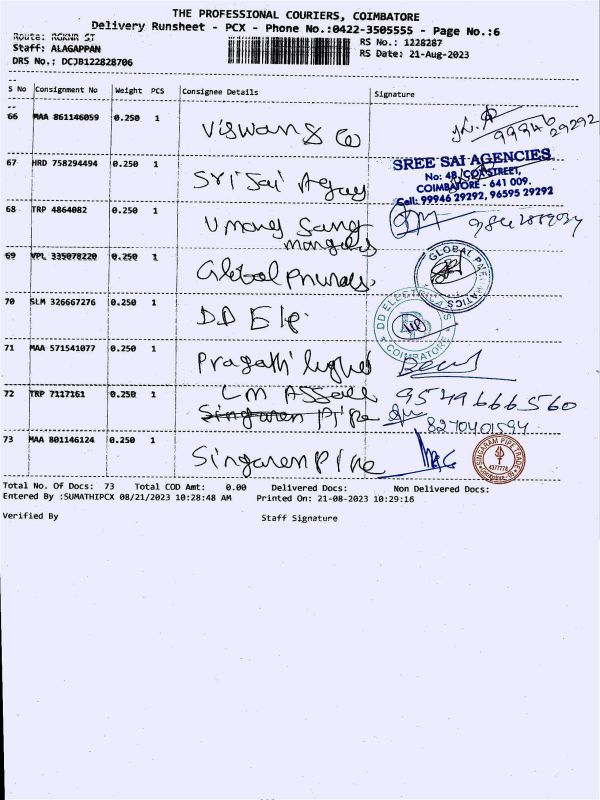 THE PROFESSIONAL COURIERS, COIMBATORE
Delivery Runsheet - PCX - Phone No.:0422-3505555 - Page No.:6
Route: RGKNR ST
RS No.: 1228287
Staff: ALAGAPPAN
RS Date: 21-Aug-2023
DRS No.: DCJB122828706
S No Consignment No Weight PCS Consignee Details Signature
66 MAA 861146059 0.250 1 Viswan & Co
99946 29292
67 HRD 758294494 0.250 1 Sri Sai Agency
SREE SAI AGENCIES
No: 48, COX STREET,
COIMBATORE - 641 009.
Cell: 99946 29292, 96595 29292
68 TRP 4864082 0.250 1 Umang Sang
mangalys
69 VPL 335078220 0.250 1 Global
GLOBAL PNEUMATICS
70 SLM 326667276 0.250 1 DD Ele
DD ELECTRICALS
COIMBATORE
71 MAA 571541077 0.250 1 Pragathi
72 TRP 7117161 0.250 1 LM
9549666560
Singaren Pipe
8270401594
73 MAA 801146124 0.250 1 Singaren Pipe
SINGARAM PIPE TRADERS
4377778
Total No. Of Docs: 73 Total COD Amt: 0.00 Delivered Docs: Non Delivered Docs:
Entered By :SUMATHIPCX 08/21/2023 10:28:48 AM Printed On: 21-08-2023 10:29:16
Verified By Staff Signature